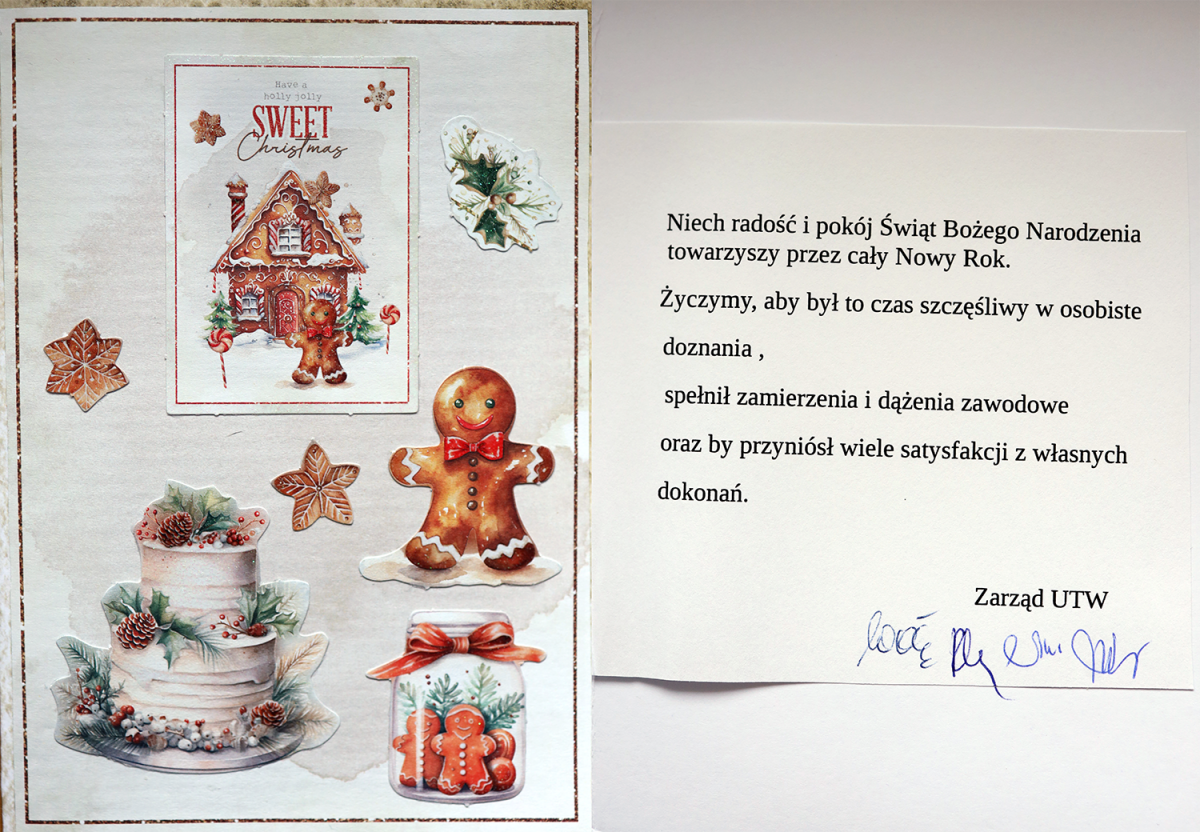 Have a
holly jolly
SWEET
Christmas
Niech radość i pokój Świąt Bożego Narodzenia
towarzyszy przez cały Nowy Rok.
Życzymy, aby był to czas szczęśliwy w osobiste
doznania ,
spełnił zamierzenia i dążenia zawodowe
oraz by przyniósł wiele satysfakcji z własnych
dokonań.
Zarząd UTW